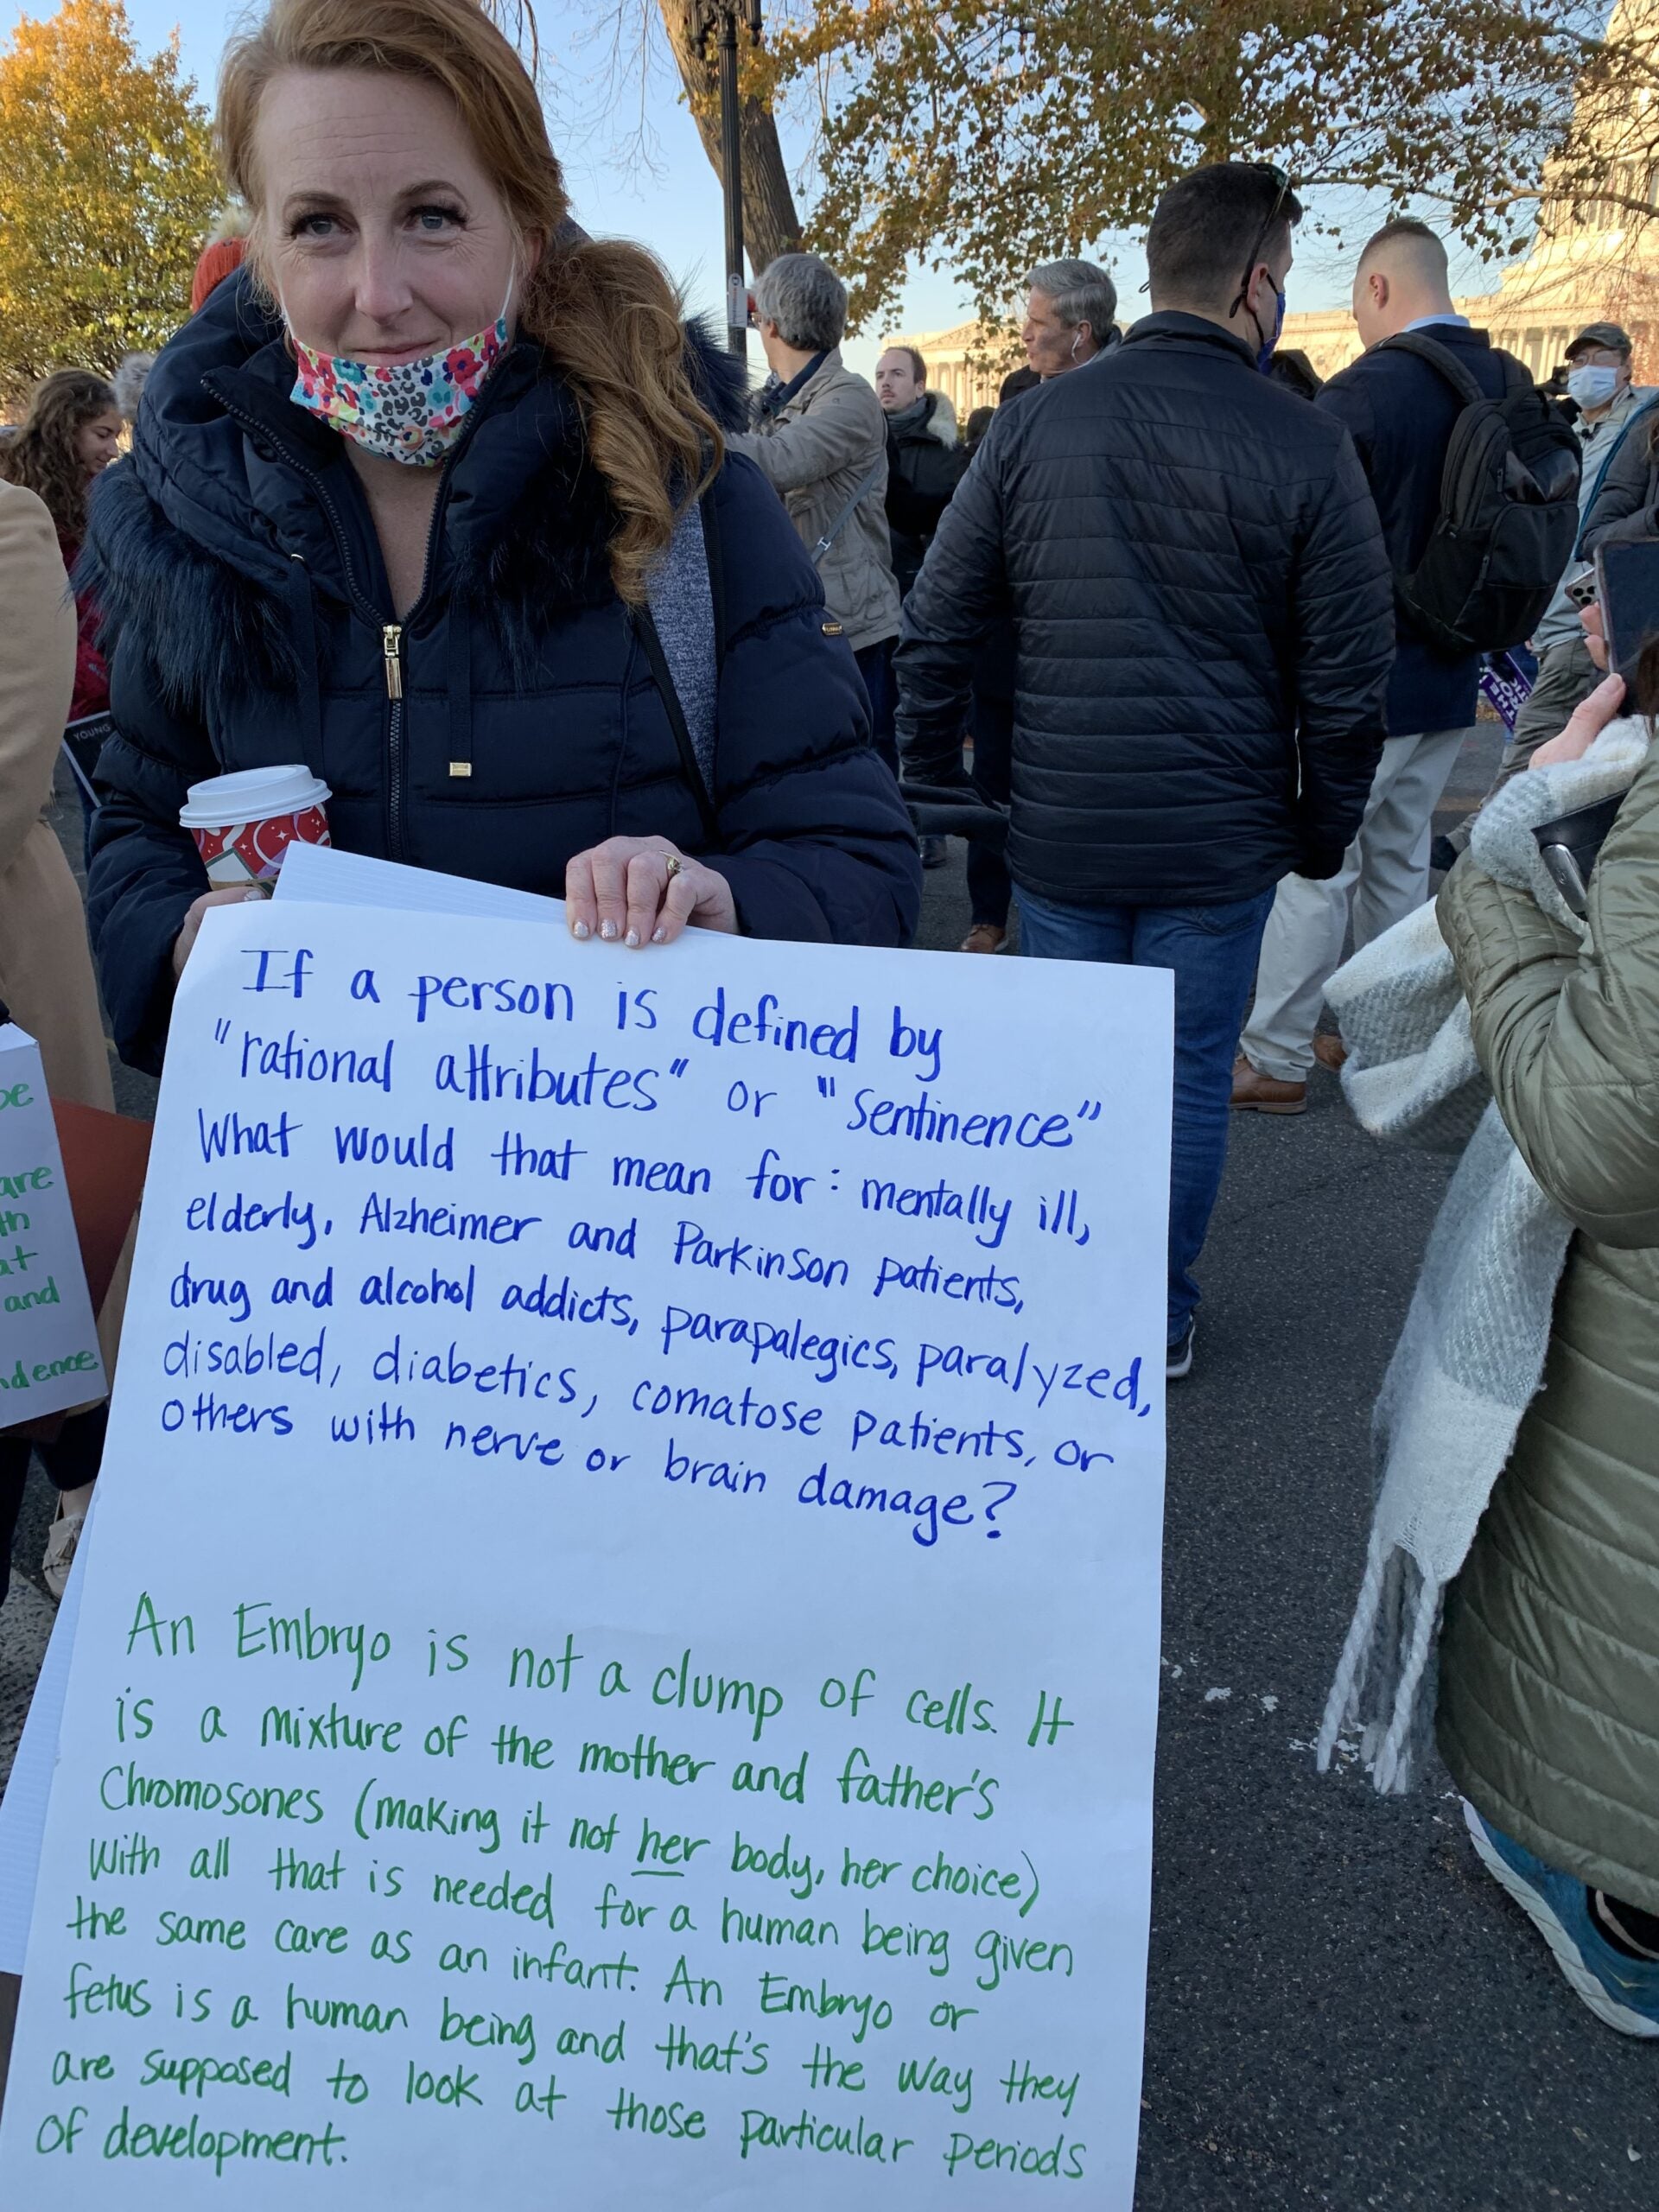 If a person is defined by
"rational attributes" or "Sentinence"
What would that mean for: mentally ill,
elderly, Alzheimer and Parkinson patients,
drug and alcohol addicts, parapalegics, paralyzed,
disabled, diabetics, comatose patients, or
others with nerve or brain damage?
An Embryo is not a clump of cells. It
is a mixture of the mother and father's
Chromosones (making it not her body, her choice)
with all that is needed for a human being given
the same care as an infant. An Embryo or
fetus is a human being and that's the way they
are supposed to look at those particular periods
of development.
YOUNG
are
and